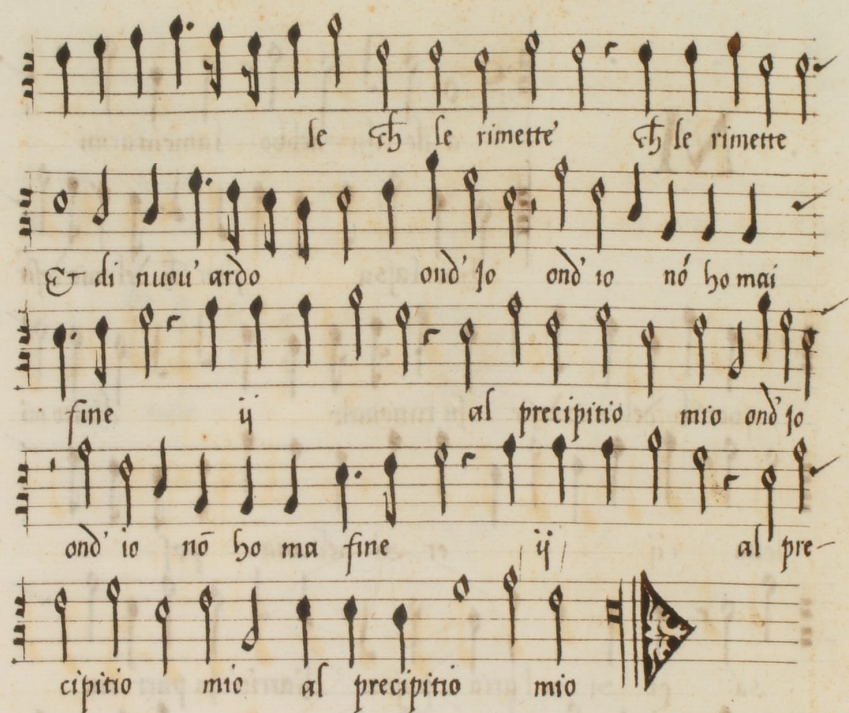 le ch le rimette ch le rimette
Et di nuou' ardo ond' Io ond' io nō ho mai
fine ij al precipitio mio ond' Io
ond' io nō ho ma fine ij al pre-
cipitio mio al precipitio mio